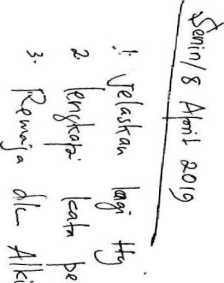 Senin/8 April 2019
1. Jelaskan lagi ttg
2. lengkapi kata pe
3. Remaja dlm Alki